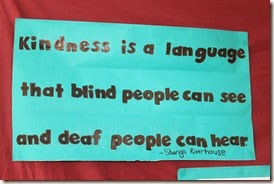 Kindness is a language
that blind people can see
and deaf people can hear
-Shanga Riverhouse